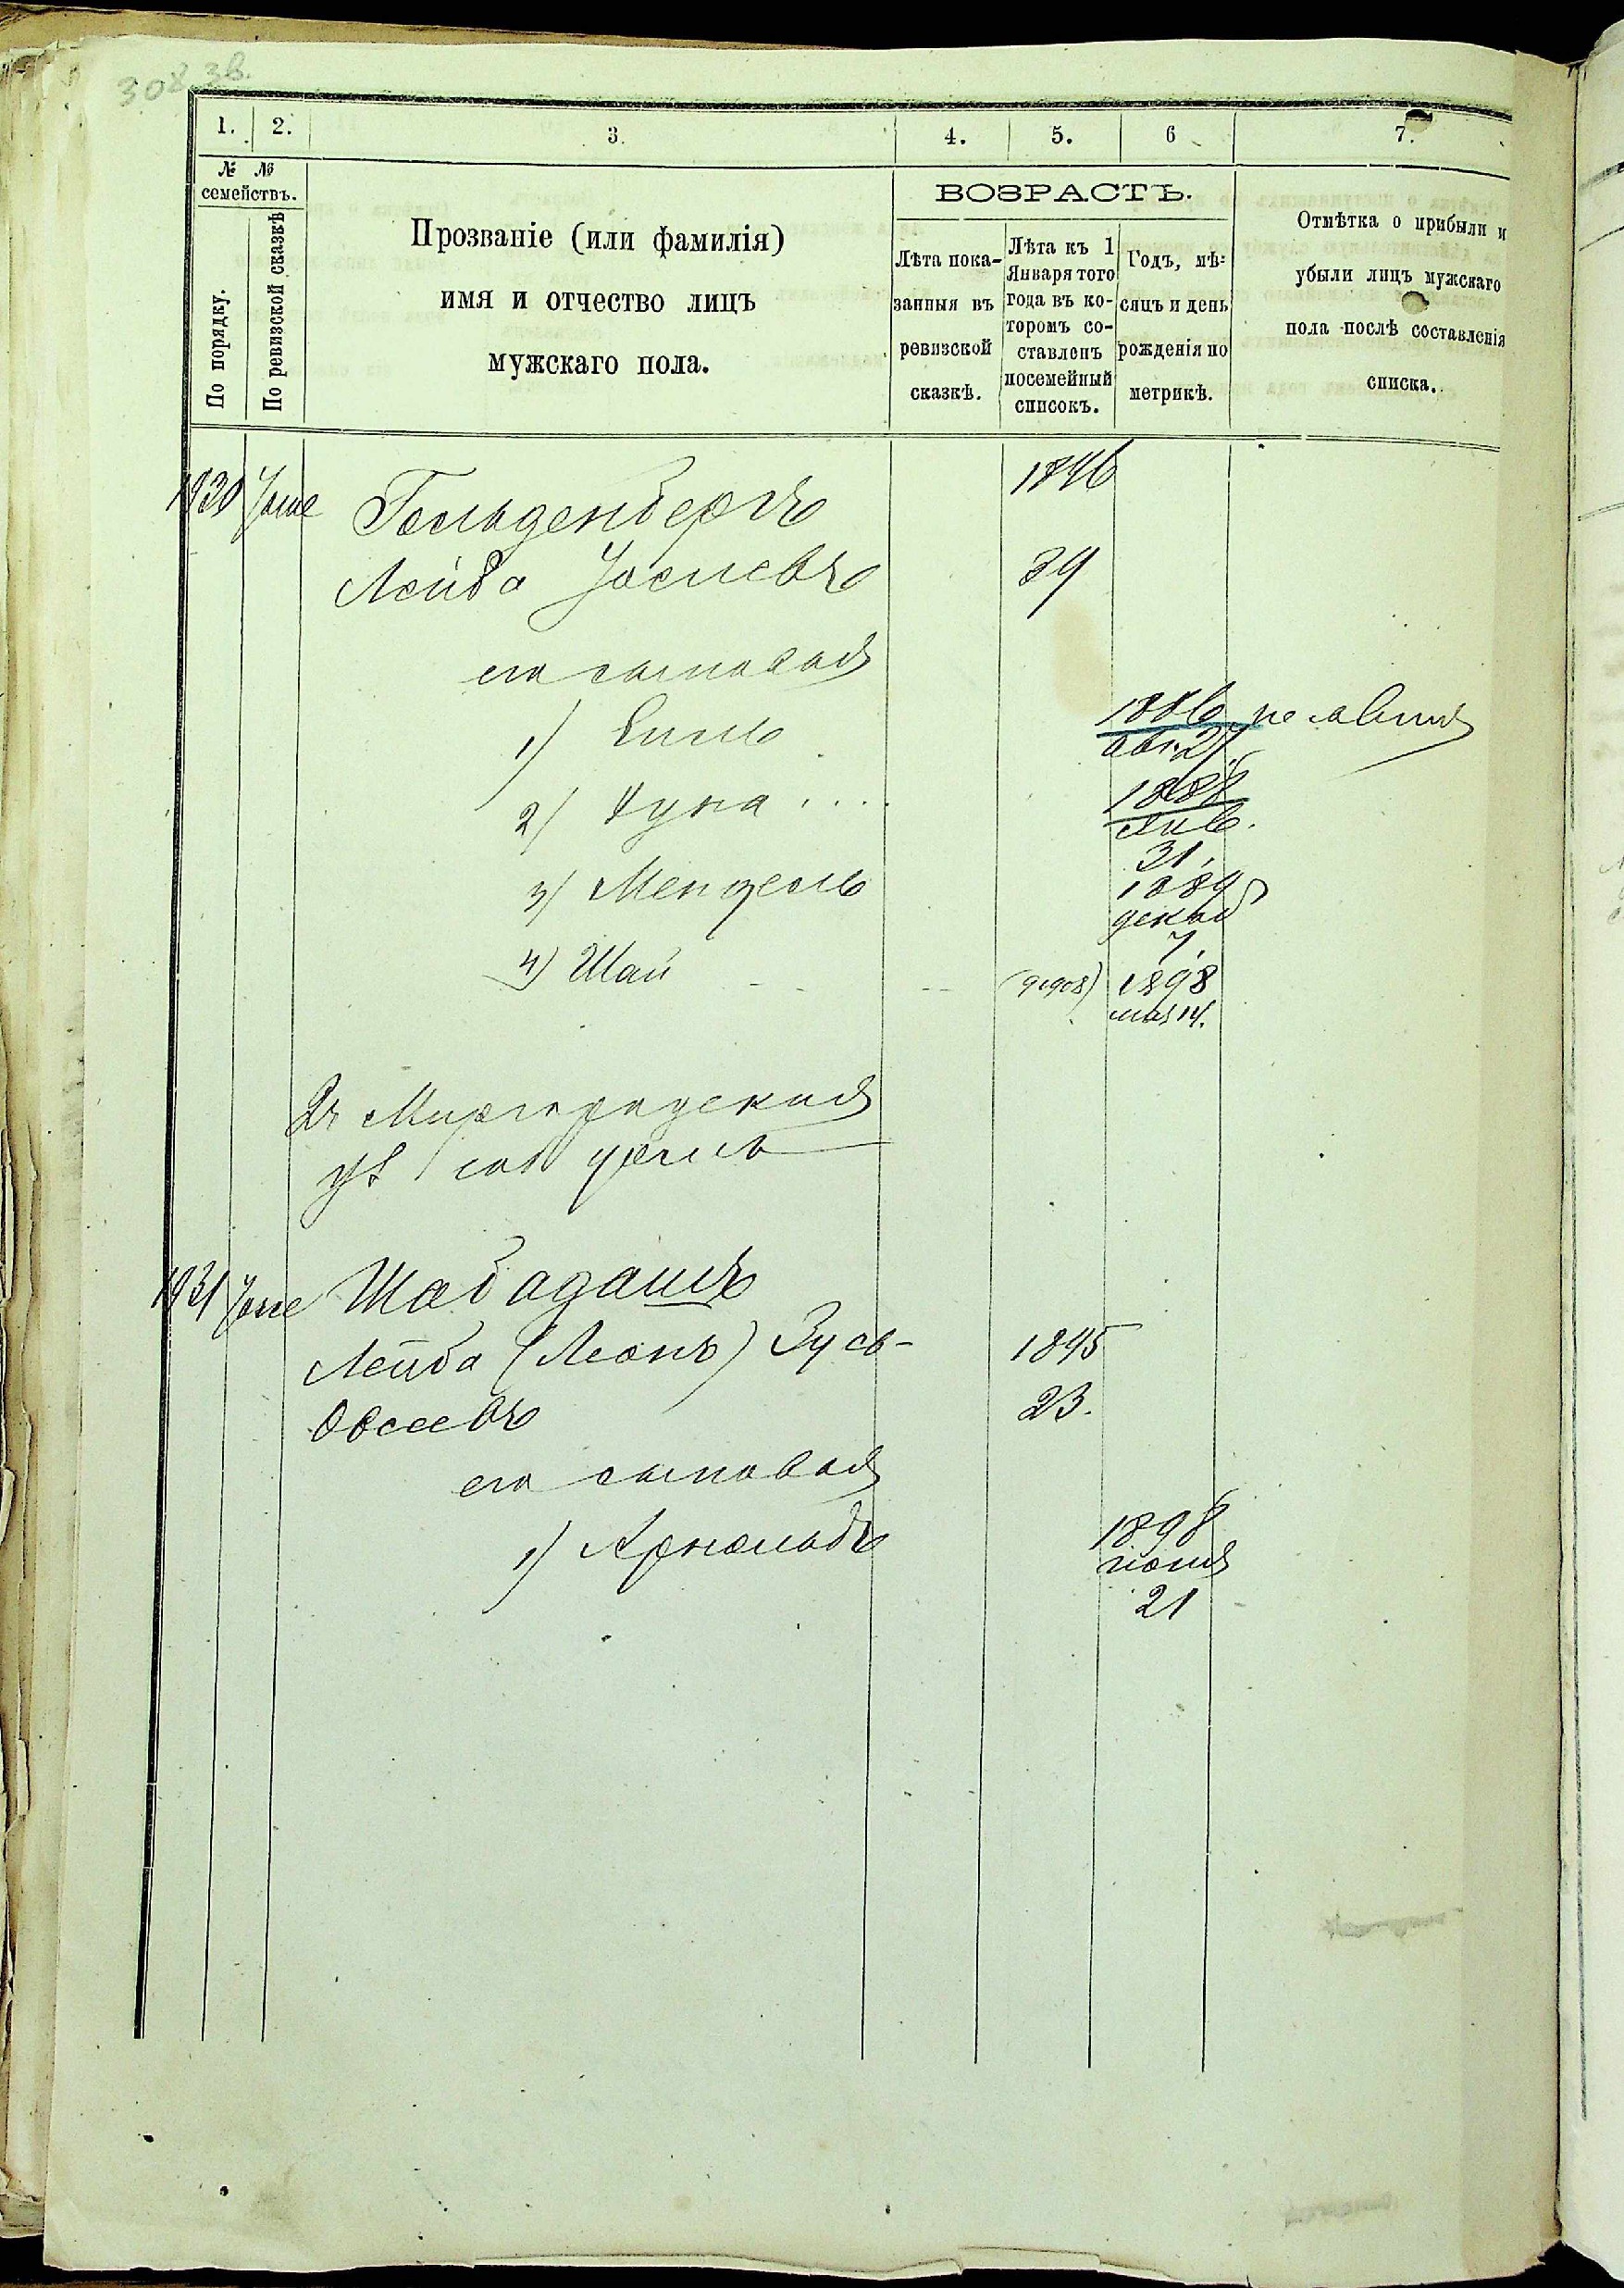 308 зв.
1. 2. 3. 4. 5. 6 7.
№ №
семействъ.
По порядку.
По ревизской сказкѣ
Прозваніе (или фамилія)
имя и отчество лицъ
мужскаго пола.
ВОЗРАСТЪ.
Лѣта пока-
занныя въ
ревизской
сказкѣ.
Лѣта къ 1
Января того
года въ ко-
торомъ со-
ставленъ
посемейный
списокъ.
Годъ, мѣ-
сяцъ и день
рожденія по
метрикѣ.
Отмѣтка о прибыли и
убыли лицъ мужскаго
пола послѣ составленія
списка.
1930 Гольденбергъ 1896
Лейба Іослевъ 39
его сыновья
1) 1886
авг. 27
2) 1888
Янв.
31.
3) Мендель 1889
декаб
7.
4) Шай 1898
мая 14.
Въ Миргородскомъ
1931 Шабадашъ
Лейба (Леонъ) Зусь- 1895
Овсеевъ 23.
его сыновья
1) Арнольдъ 1898
іюня
21